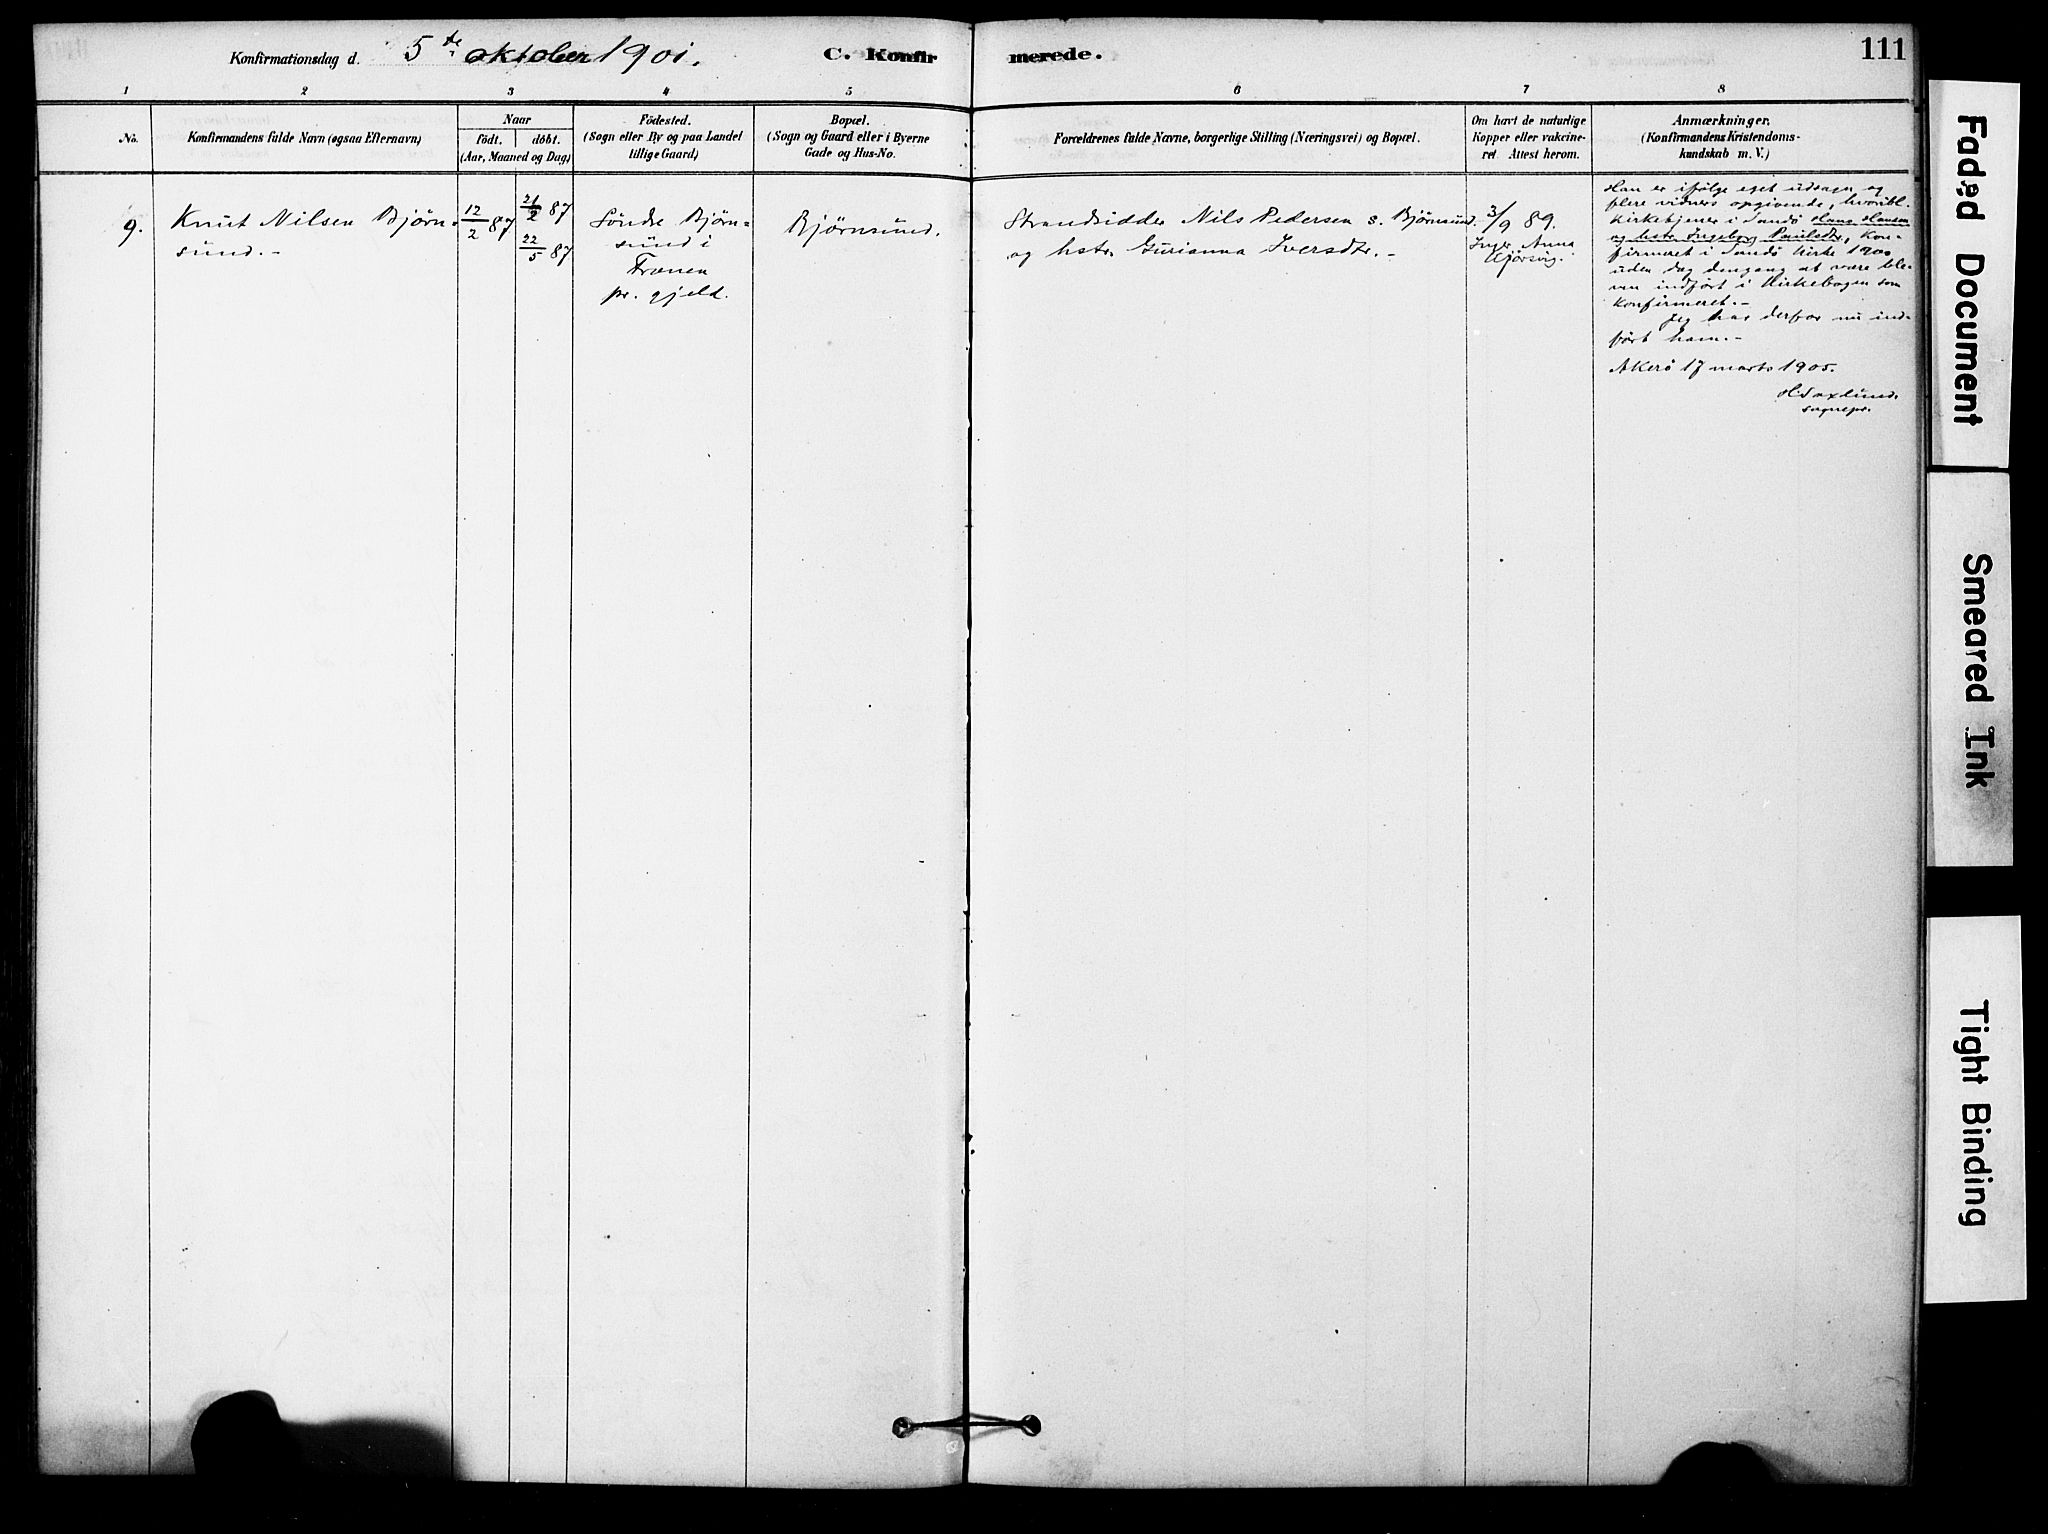 Konfirmationsdag d. 5te oktober 1901. C. Konfirmerede. 111
1 2 3 4 5 6 7 8
No.
Konfirmandens fulde Navn (ogsaa Efternavn)
Naar
födt. döbt.
(Aar, Maaned og Dag)
Födested.
(Sogn eller By og paa Landet
tillige Gaard)
Bopæl.
(Sogn og Gaard eller i Byerne
Gade og Hus-No.
Forældrenes fulde Navne, borgerlige Stilling (Næringsvei) og Bopæl.
Om havt de naturlige
Kopper eller vakcine-
ret. Attest herom.
Anmærkninger.
(Konfirmandens Kristendoms-
kundskab m. V.)
9.
Knut Nilsen Bjørn-
sund.-
12/2 87
21/2 87
22/5 87
Søndre Bjørn-
sund i
Frænen
pr. gjeld.
Bjørnsund.
Strandsidder Nils Pedersen s. Bjørnsund.
og hstr. Gurianna Iversdtr.-
3/9 89.
Inger Anna
Han er ifølge eget udsagn og
flere vidners opgivende, hvoribl.
kirketjener i Sandø Hans Hansen
og hstr. Ingeborg Paulsdtr., kon-
firmeret i Sandø Kirke 1900
uden dog dengang at være ble-
ven indført i Kirkebogen som
konfirmeret.-
Jeg har derfor nu ind-
ført ham.-
Akerø 17 marts 1905.
H Saxlund.
sognepr.
Faded Document
Smeared Ink
Tight Binding